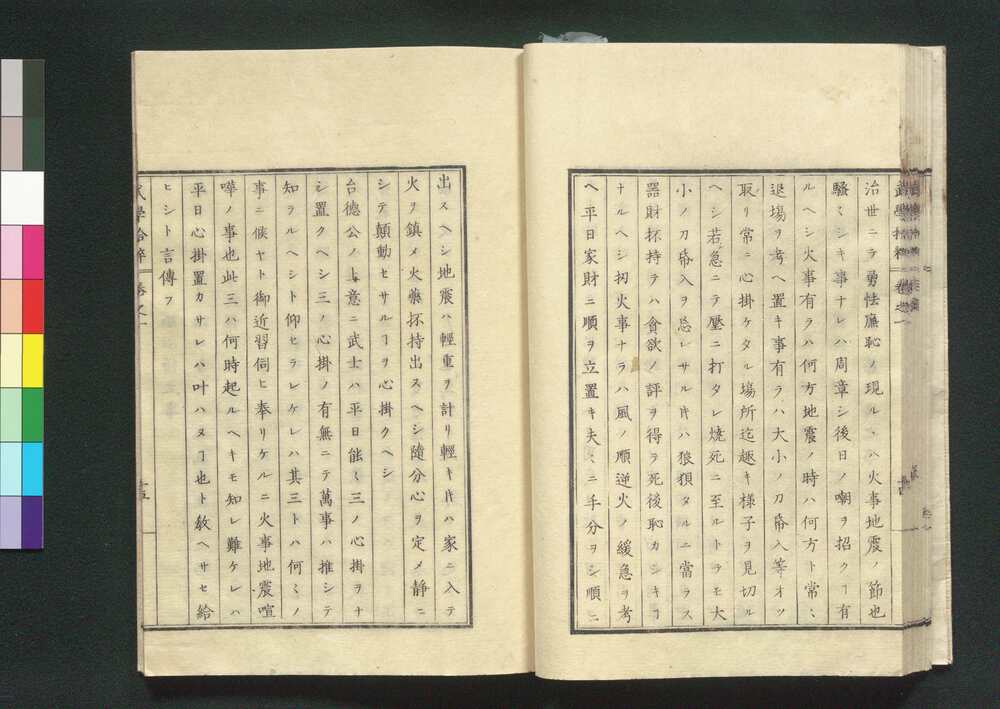 治世ニテ勇怯廉恥ノ現ルヽハ火事地震ノ節也
騒〻シキ事ナレハ周章シ後日ノ嘲ヲ招クヿ有
ルヘシ火事有ラハ何方地震ノ時ハ何方ト常〻
退場ヲ考ヘ置キ事有ラハ大小ノ刀帋入等オツ
取リ常ニ心掛ケタル場所迄趣キ様子ヲ見切ル
ヘシ若急ニテ壓ニ打タレ焼死ニ至ルトテモ大
小ノ刀帋入ヲ忘レサル𪜈ハ狼狽タルニ當ラス
器財抔持テハ貪欲ノ評ヲ得テ死後恥カシキヿ
ナルヘシ扨火事ナラハ風ノ順逆火ノ緩急ヲ考
ヘ平日家財ニ順ヲ立置キ夫〻ニ手分ヲシ順ニ
出スヘシ地震ハ輕重ヲ計リ輕キ𪜈ハ家ニ入テ
火ヲ鎮メ火藥抔持出スヘシ隨分心ヲ定メ静ニ
シテ顛動セサルヿヲ心掛クヘシ
台德公ノ上意ニ武士ハ平日能〻三ノ心掛ヲナ
シ置クヘシ三ノ心掛ノ有無ニテ萬事ハ推シテ
知ラルヘシト仰セラレケレハ其三トハ何〻ノ
事ニ候ヤト御近習伺ヒ奉リケルニ火事地震喧
嘩ノ事也此三ハ何時起ルヘキモ知レ難ケレハ
平日心掛置カサレハ叶ハヌヿ也ト敎ヘサセ給
ヒシト言傳フ